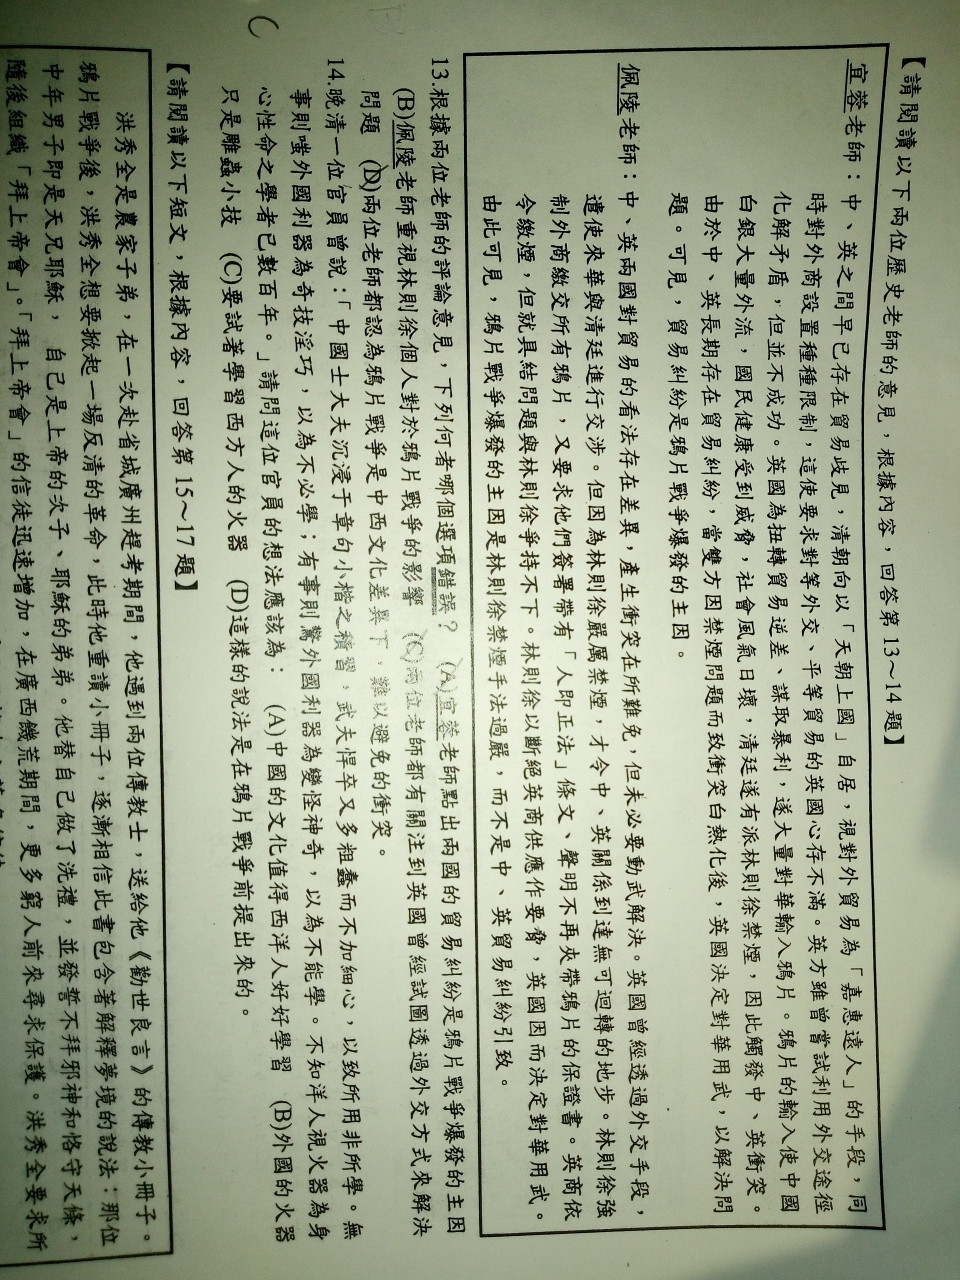 C
【請閱讀以下兩位歷史老師的意見，根據內容，回答第 13～14 題】
宜蓉老師：中、英之間早已存在貿易歧見，清朝向以「天朝上國」自居，視對外貿易為「嘉惠遠人」的手段，同
時對外商設置種種限制，這使要求對等外交、平等貿易的英國心存不滿。英方雖曾嘗試利用外交途徑
化解矛盾，但並不成功。英國為扭轉貿易逆差、謀取暴利，遂大量對華輸入鴉片。鴉片的輸入使中國
白銀大量外流，國民健康受到威脅，社會風氣日壞，清廷遂有派林則徐禁煙，因此觸發中、英衝突。
由於中、英長期存在貿易糾紛，當雙方因禁煙問題而致衝突白熱化後，英國決定對華用武，以解決問
題。可見，貿易糾紛是鴉片戰爭爆發的主因。
佩陵老師：中、英兩國對貿易的看法存在差異，產生衝突在所難免，但未必要動武解決。英國曾經透過外交手段，
遣使來華與清廷進行交涉。但因為林則徐嚴厲禁煙，才令中、英關係到達無可迴轉的地步。林則徐強
制外商繳交所有鴉片，又要求他們簽署帶有「人即正法」條文、聲明不再夾帶鴉片的保證書。英商依
令繳煙，但就具結問題與林則徐爭持不下。林則徐以斷絕英商供應作要脅，英國因而決定對華用武。
由此可見，鴉片戰爭爆發的主因是林則徐禁煙手法過嚴，而不是中、英貿易糾紛引致。
13.根據兩位老師的評論意見，下列何者哪個選項錯誤？ (A)宜蓉老師點出兩國的貿易糾紛是鴉片戰爭爆發的主因
(B)佩陵老師重視林則徐個人對於鴉片戰爭的影響 (C)兩位老師都有關注到英國曾經試圖透過外交方式來解決
問題 (D)兩位老師都認為鴉片戰爭是中西文化差異下，難以避免的衝突。
14.晚清一位官員曾說：「中國士大夫沉浸于章句小楷之積習，武夫悍卒又多粗蠢而不加細心，以致所用非所學。無
事則嗤外國利器為奇技淫巧，以為不必學；有事則驚外國利器為變怪神奇，以為不能學。不知洋人視火器為身
心性命之學者已數百年。」請問這位官員的想法應該為： (A)中國的文化值得西洋人好好學習 (B)外國的火器
只是雕蟲小技 (C)要試著學習西方人的火器 (D)這樣的說法是在鴉片戰爭前提出來的。
【請閱讀以下短文，根據內容，回答第 15～17 題】
洪秀全是農家子弟，在一次赴省城廣州趕考期間，他遇到兩位傳教士，送給他《勸世良言》的傳教小冊子。
鴉片戰爭後，洪秀全想要掀起一場反清的革命，此時他重讀小冊子，逐漸相信此書包含著解釋夢境的說法：那位
中年男子即是天兄耶穌，自己是上帝的次子、耶穌的弟弟。他替自己做了洗禮，並發誓不拜邪神和恪守天條，
隨後組織「拜上帝會」。「拜上帝會」的信徒迅速增加，在廣西饑荒期間，更多窮人前來尋求保護。洪秀全要求所